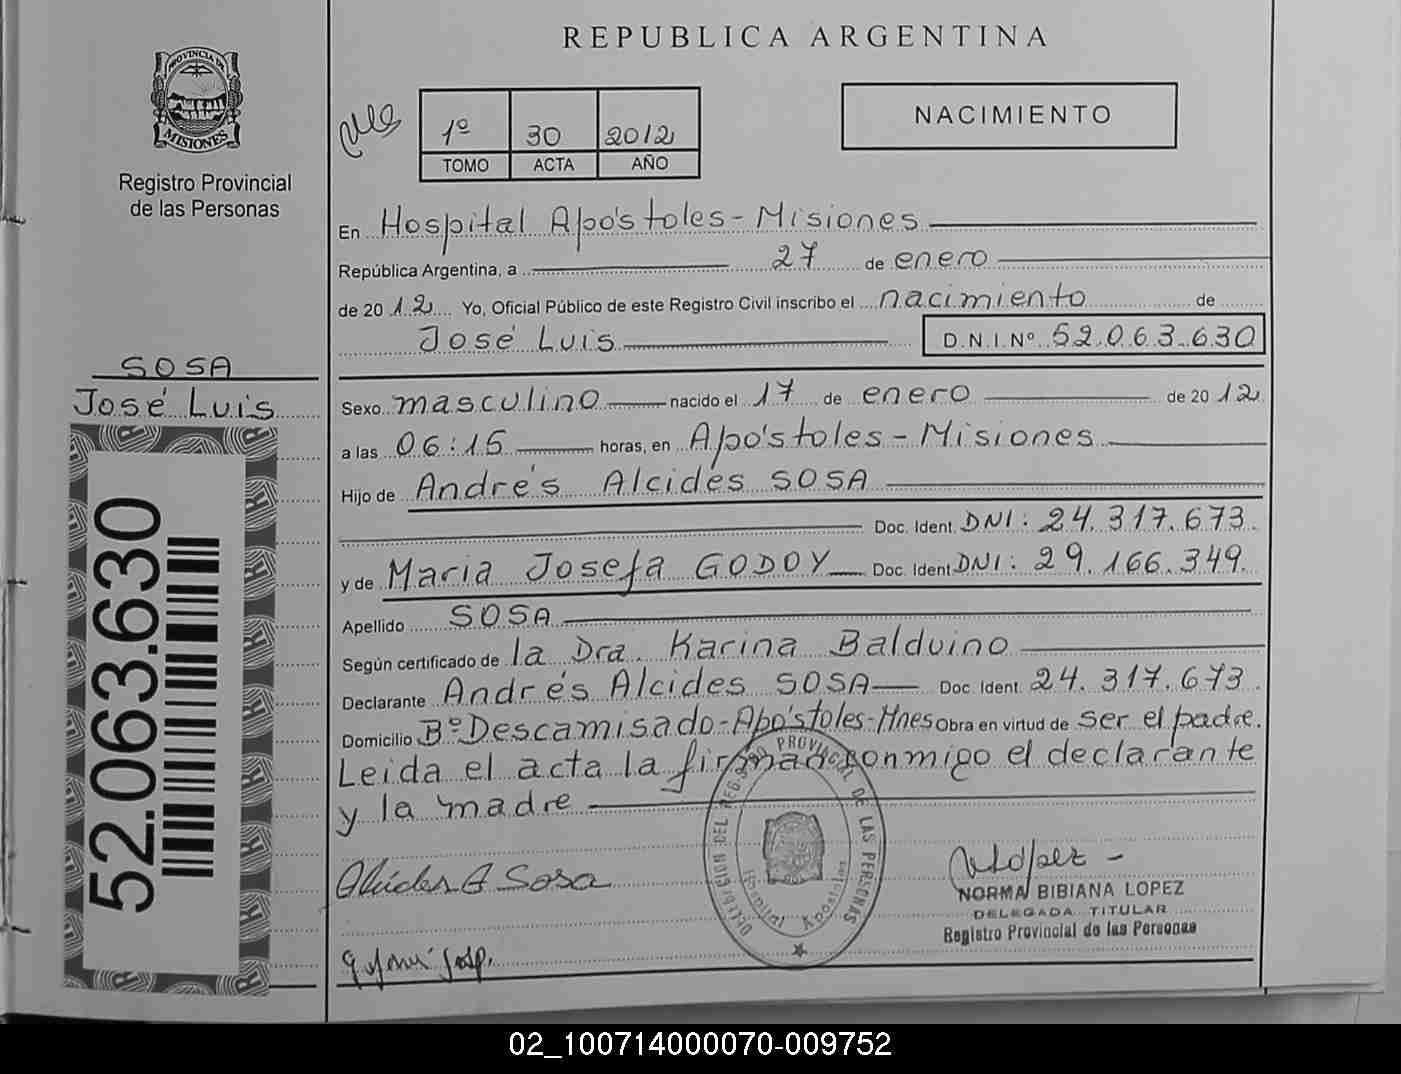 REPUBLICA ARGENTINA
PROVINCIA DE
MISIONES
Registro Provincial
de las Personas
1º 30 2012
TOMO ACTA AÑO
NACIMIENTO
En Hospital Apóstoles - Misiones
República Argentina, a 27 de enero
de 2012 Yo, Oficial Público de este Registro Civil inscribo el nacimiento de
José Luis D.N.I. Nº 52.063.630
SOSA
José Luis
52.063.630
Sexo masculino nacido el 17 de enero de 2012
a las 06:15 horas, en Apóstoles - Misiones
Hijo de Andrés Alcides SOSA
Doc. Ident. DNI: 24.317.673.
y de Maria Josefa GODOY Doc. Ident DNI: 29.166.349.
Apellido SOSA
Según certificado de la Dra. Karina Balduino
Declarante Andrés Alcides SOSA Doc. Ident. 24.317.673
Domicilio Bº Descamisado - Apóstoles - Mnes Obra en virtud de ser el padre.
Leida el acta la firman conmigo el declarante
y la madre
DELEGACION DEL REGISTRO PROVINCIAL DE LAS PERSONAS
Hospital Apostoles
Alcides A Sosa
López
NORMA BIBIANA LOPEZ
DELEGADA TITULAR
Registro Provincial de las Personas
02_100714000070-009752